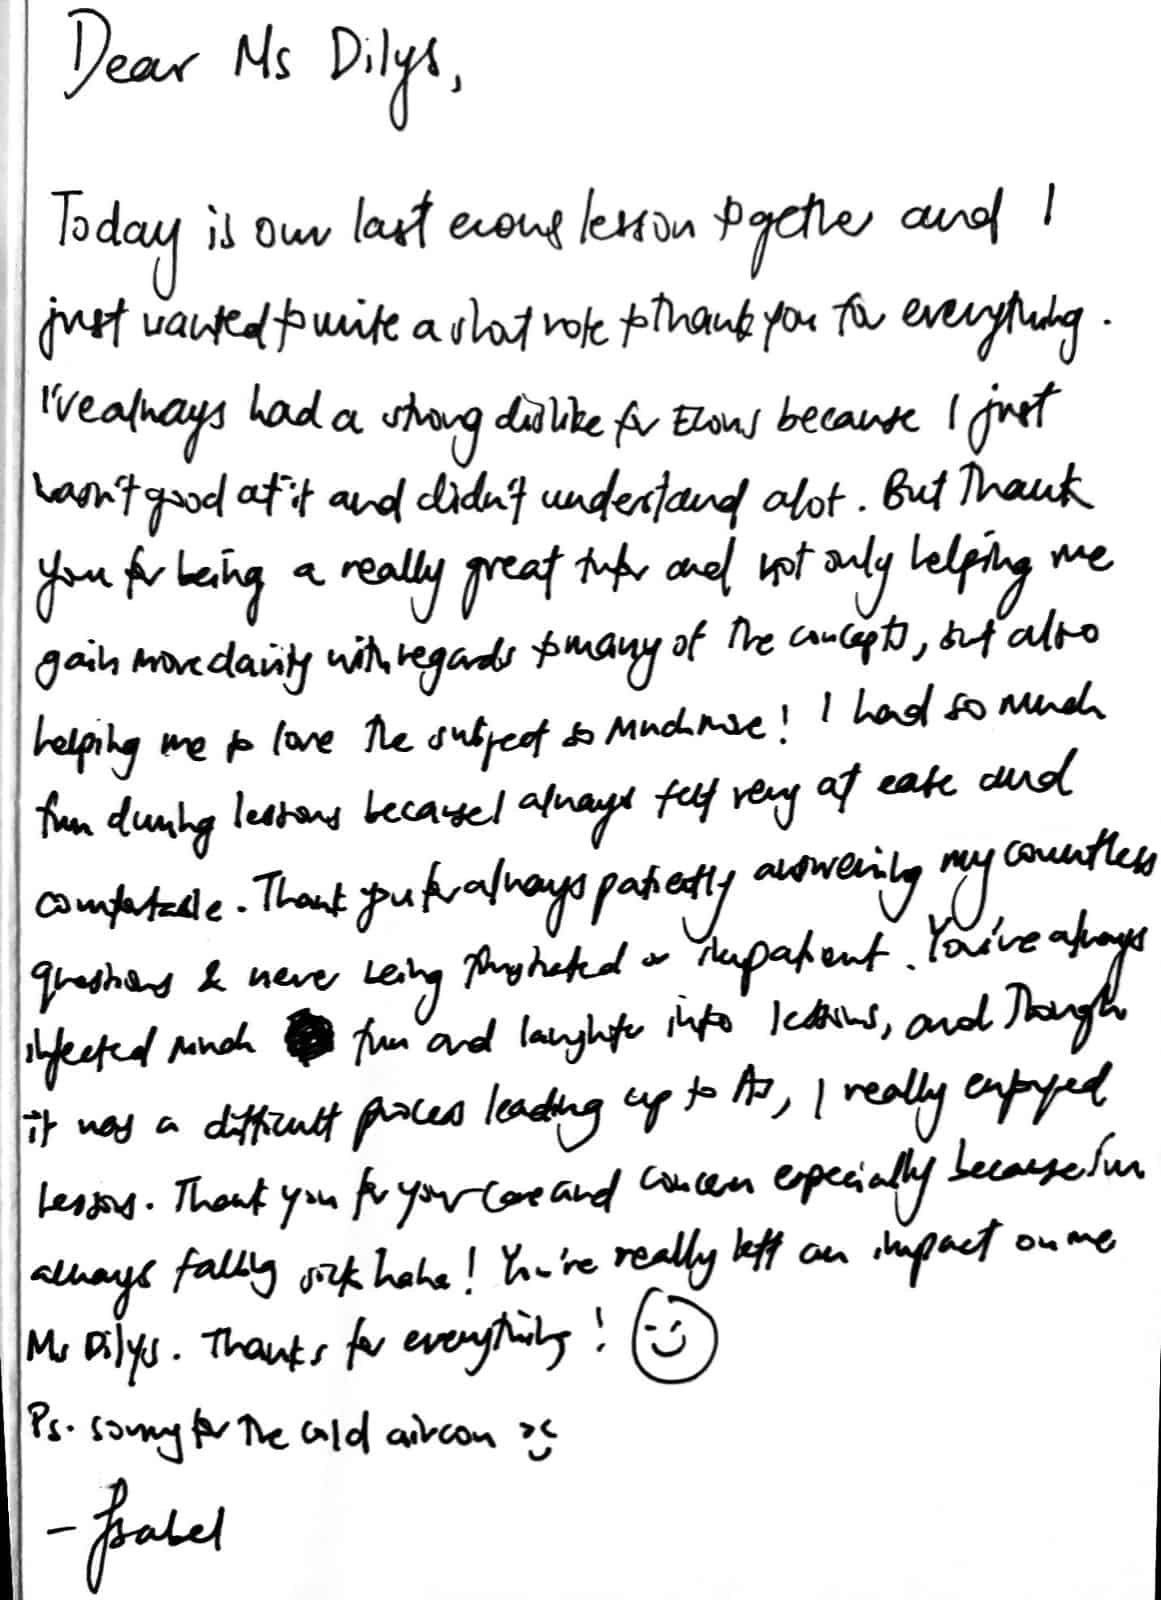 Dear Ms Dilys,
Today is our last econs lesson together and I
just wanted to write a short note to thank you for everything.
I've always had a strong dislike for Econs because I just
wasn't good at it and didn't understand alot. But Thank
you for being a really great tutor and not only helping me
gain more clarity with regards to many of the concepts, but also
helping me to love the subject so much more! I had so much
fun during lessons because I always felt very at ease and
comfortable. Thank you for always patiently answering my countless
questions & never being frustrated or impatient. You've always
injected much fun and laughter into lessons, and Though
it was a difficult process leading up to As, I really enjoyed
lessons. Thank you for your care and concern especially because I'm
always falling sick haha! You've really left an impact on me
Ms Dilys. Thanks for everything!
Ps. sorry for the cold aircon
- Isabel